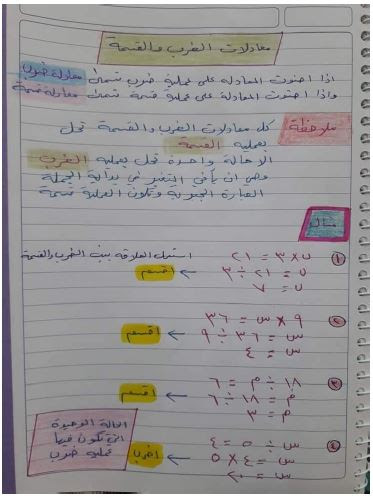 معادلات الضرب والقسمة
اذا احتوت المعادله على عملية ضرب تسمى معادلة ضرب
واذا احتوت المعادلة على عملية قسمة تسمى معادلة قسمة
ملاحظة
كل معادلات الضرب والقسمة تحل
بعملية القسمة
الا حالة واحدة تحل بعملية الضرب
وهي ان يأتي المتغير في بداية الجملة
العبارة الجبرية وتكون العملية قسمة
مثال
١ ن × ٣ = ٢١ استعمل العلاقة بين الضرب والقسمة
ن = ٢١ ÷ ٣ ← اقسم
ن = ٧
٢ ٩ × س = ٣٦
س = ٣٦ ÷ ٩ ← اقسم
س = ٤
٣ ١٨ ÷ م = ٦
م = ١٨ ÷ ٦ ← اقسم
م = ٣
٤ س ÷ ٥ = ٤
س = ٤ × ٥ ← اضرب
س = ٢٠
الحالة الوحيدة
التي تكون فيها
عملية ضرب